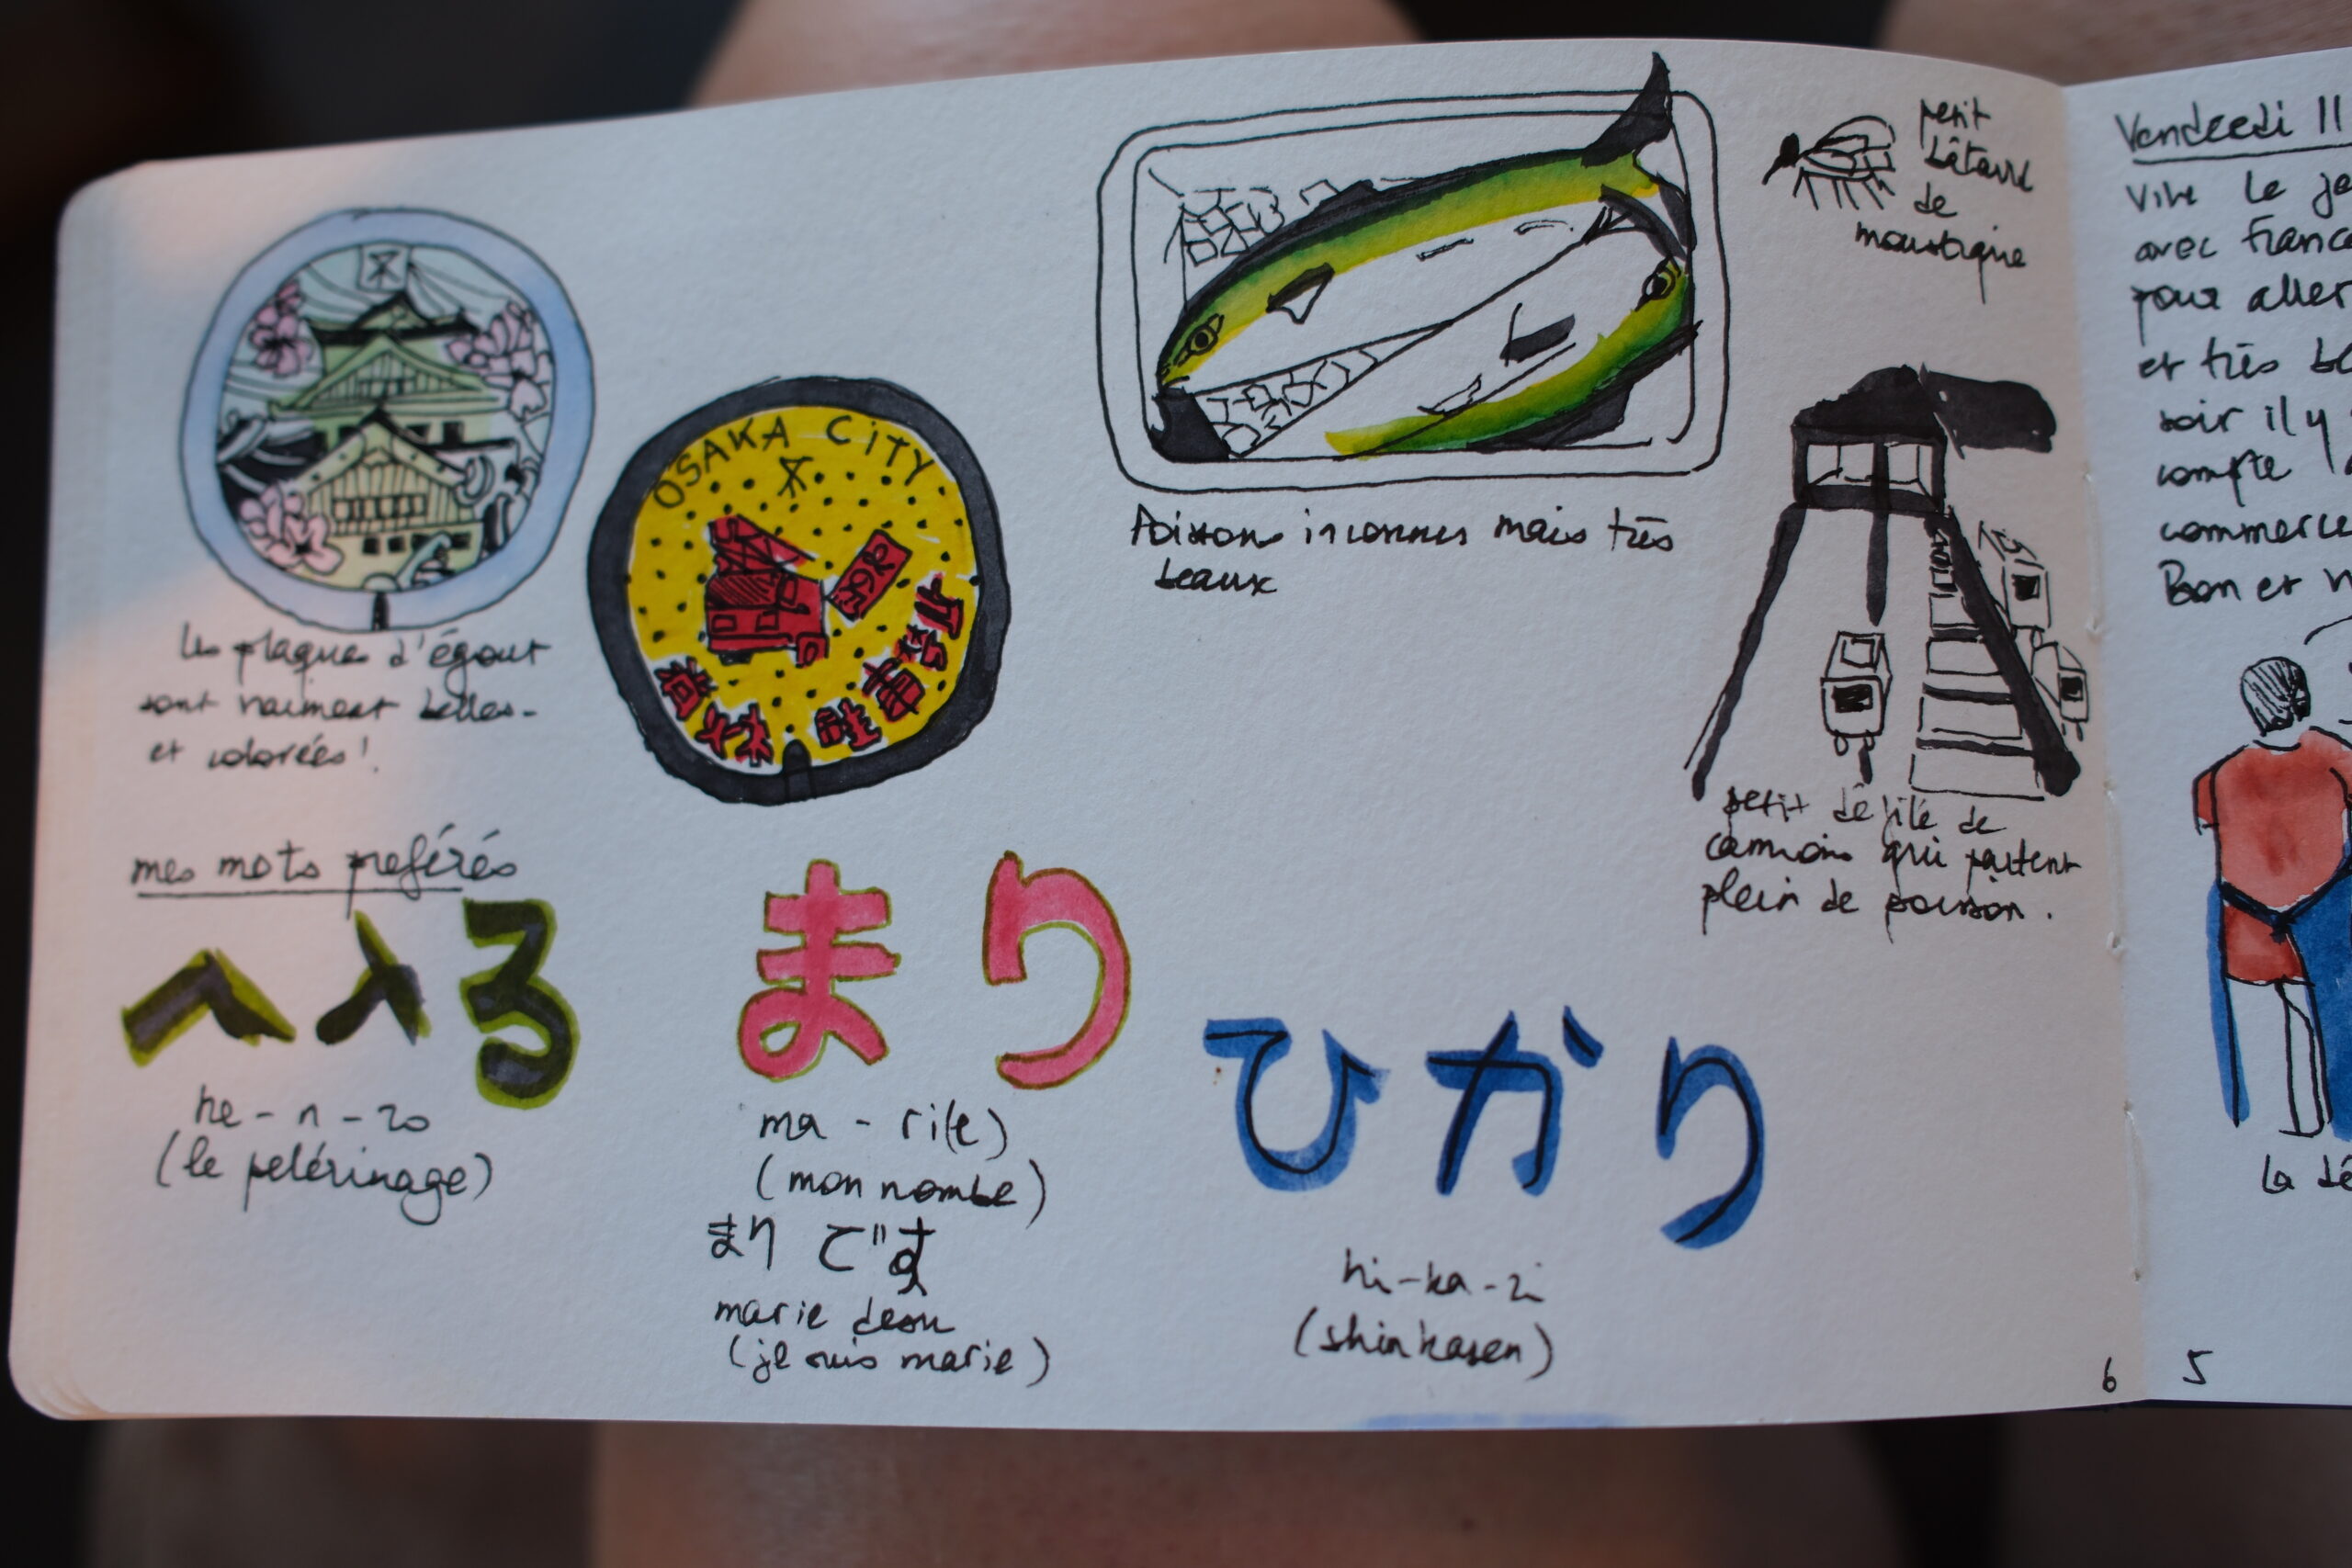 OSAKA CITY
les plaques d'égout
sont vraiment belles
et colorées !
Poissons inconnus mais très
beaux
petit
bâtard
de
moustique
petit défilé de
camions qui partent
plein de poisson.
mes mots préférés
へ る
he - n - ro
(le pelérinage)
まり
ma - ri(e)
(mon nombe)
まり です
marie desu
(je suis marie)
ひかり
hi-ka-ri
(shinkasen)
6
Vendredi 11
vive le
avec
pour aller
et très
soir il y
compte
commerce
Bon et
La
5